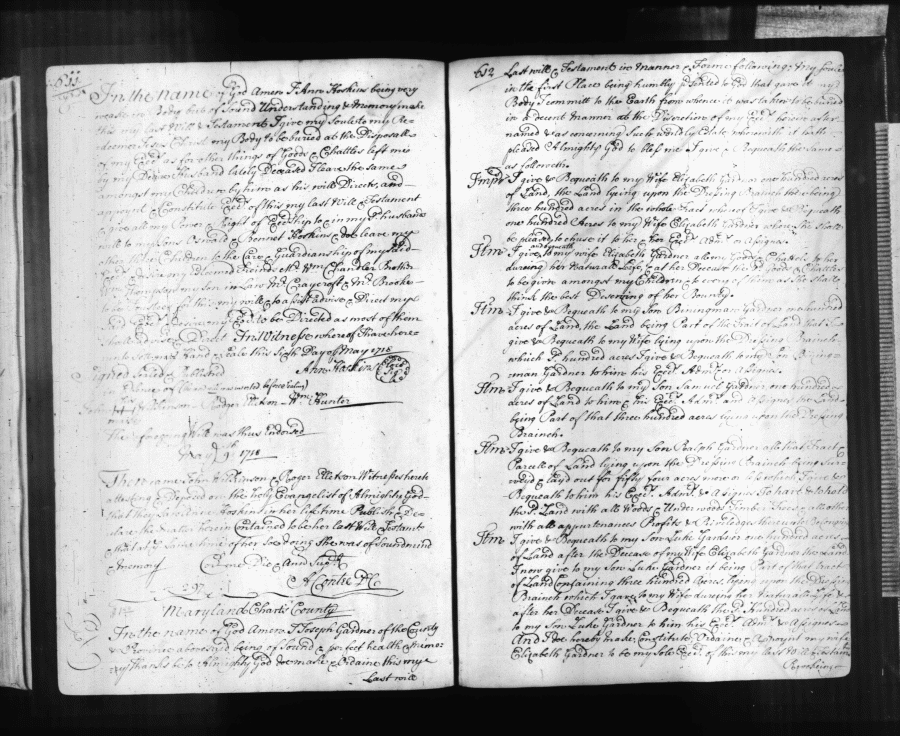 611
In the name of God Amen I Ann Hoskins being very
weake in Body but of Sound Understanding & Memory make
this my last Will & Testament I give my Soule to my Re-
deemer Jesus Christ my Body to be buried at the Disposall
of my Exrs as for other things of Goods & Chattles left me
by my Dear Husband lately Deceased I leave the same
amongst my Children by him as his will Directs, and
appoynt & Constitute Exrs of this my last Will & Testament
I give all my Power & Right of Exrship to in my husbands
will to my Sons Oswald & Bennet Hoskins & doe leave my
other Children to the Care & Guardianship of my
my Esteemed Friends Mr. Wm Chandler
Thompson my Son in Law Mr Craycroft & Mr. Brooke
of this my will & to assist advise & Direct my
Exrs to be Directed as most of them
In Witness whereof I have here
unto set my Hand & Seale this Sixth Day of May 1718
Signed Sealed & Published
Ann Hoskins
in Presence of these
John Wilkinson Rodger Ellitson Wm Hunter
mark
The foregoing Will was thus Endorsed
May 9th 1718
Then came John Wilkinson & Roger Ellitson Witnesses hereto
attesting & Deposed on the holy Evangelist of Almighty God
that they saw Ann Hoskins in her life time Publish & De-
clare the matter herein Contained to be her last Will & Testamt
& that at ye same time of her soe doing She was of Sound mind
& memory
Come Die And Supra
A Contee
Maryland Charls County
In the name of God Amen I Joseph Gardner of the County
& Province abovesaid being of Sound & perfect health & Memo-
ry thanks be to Almighty God doe make & Ordaine this my
Last will
612
Last will & Testament in Manner & Forme following; my Soule
in the first Place being humbly p'sented to God that gave it my
Body I committ to the Earth from whence it was taken to be buried
in a decent Manner at the Discretion of my Exrs herein after
named & as concerning Such worldly Estate wherewith it hath
pleased Almighty God to bless me I give & Bequeath the same
as followeth.
Imprs I give & Bequeath to my Wife Elizabeth Gardner one hundred acres
of Land, the Land lying upon the Branch there being
three hundred acres in the whole Tract whereof I give & Bequeath
one hundred Acres to my Wife Elizabeth Gardner where She shall
be pleased to chuse it to her & her Exrs Admrs or Assignes.
and bequeath
Itm I give to my wife Elizabeth Gardner all my Goods & Chattells to her
dureing her Naturall Life, & at her Decease the sd Goods & Chattles
to be given amongst my Children to every of them as She shall
think the best Deserving of her Bounty.
Itm I give & Bequeath to my Son Gardner one hundred
acres of Land, the Land being Part of the Tract of Land that I
give & Bequeath to my Wife lying upon the Branch
which sd hundred acres I give & Bequeath to my Son
Gardner to him his Exrs Admrs or Assignes.
Itm I give & Bequeath to my Son Samuel Gardner one hundred
acres of Land to him & his Exrs Admrs and Assignes the Land
being Part of that three hundred acres lying upon the
Branch.
Itm I give & Bequeath to my Son Ralph Gardner all that Tract
Parcell of Land lying upon the Branch being Sur-
veyd & layd out for fifty four acres more or less which I give &
Bequeath to him his Exrs Admrs & Assignes To have & to hold
the sd Land with all Woods & Underwoods Timber Trees & all other
with all appurtenances Profits & Priviledges thereunto Belonging
Itm I give & Bequeath to my Son Luke Gardner one hundred acres
of Land after the Decease of my Wife Elizabeth Gardner the Land
I now give to my Son Luke Gardner it being Part of that tract
of Land Containing three hundred Acres, lying upon the
Branch which I gave to my Wife dureing her Naturall Life &
after her Decease I give & Bequeath the sd Hundred acres of Land
to my Son Luke Gardner to him his Exrs Admrs & Assignes
And I doe hereby make, Constitute Ordaine & Appoynt my wife
Elizabeth Gardner to be my Sole Exrx of this my last Will & Testamt